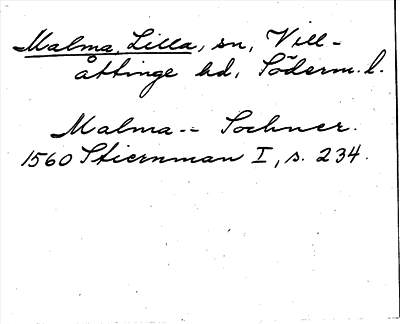 Malma, Lilla, sn, Vill-
åttinge hd, Söderm. l.
Malma -- Sochner.
1560 Stiernman I, s. 234.